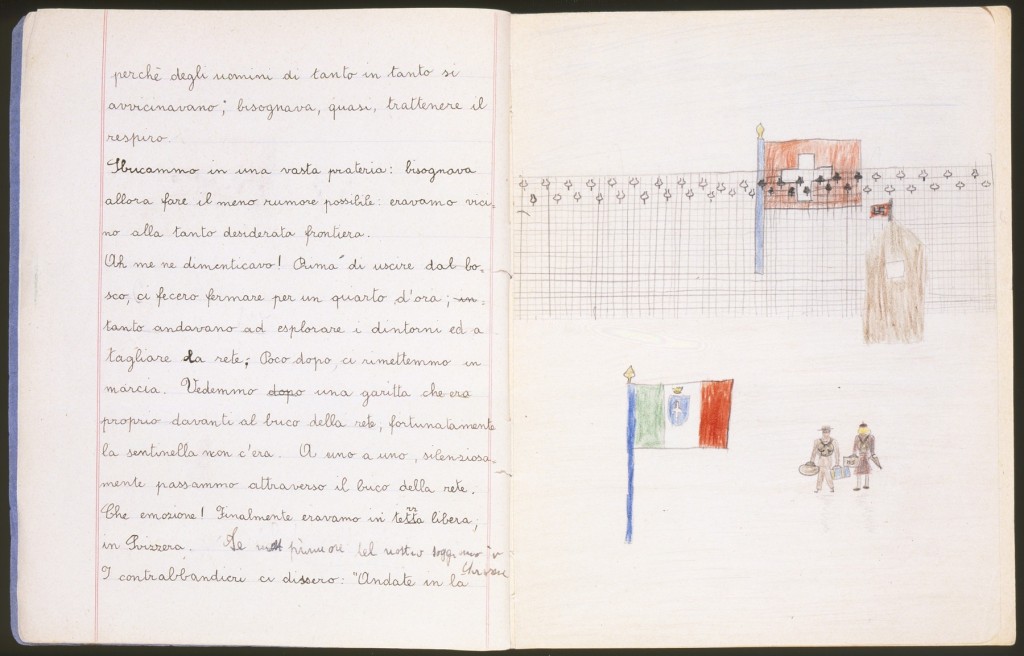 perchè degli uomini di tanto in tanto si
avvicinavano; bisognava, quasi, trattenere il
respiro.
Sbucammo in una vasta prateria: bisognava
allora fare il meno rumore possibile: eravamo vici-
no alla tanto desiderata frontiera.
Ah me ne dimenticavo! Prima di uscire dal bo-
sco, ci fecero fermare per un quarto d'ora; in-
tanto andavano ad esplorare i dintorni ed a
tagliare la rete; Poco dopo, ci rimettemmo in
marcia. Vedemmo dopo una garitta che era
proprio davanti al buco della rete, fortunatamente
la sentinella non c'era. A uno a uno, silenziosa-
mente passammo attraverso il buco della rete.
Che emozione! Finalmente eravamo in terra libera,
in Svizzera. Le prime ore del nostro
I contrabbandieri ci dissero: "Andate in la